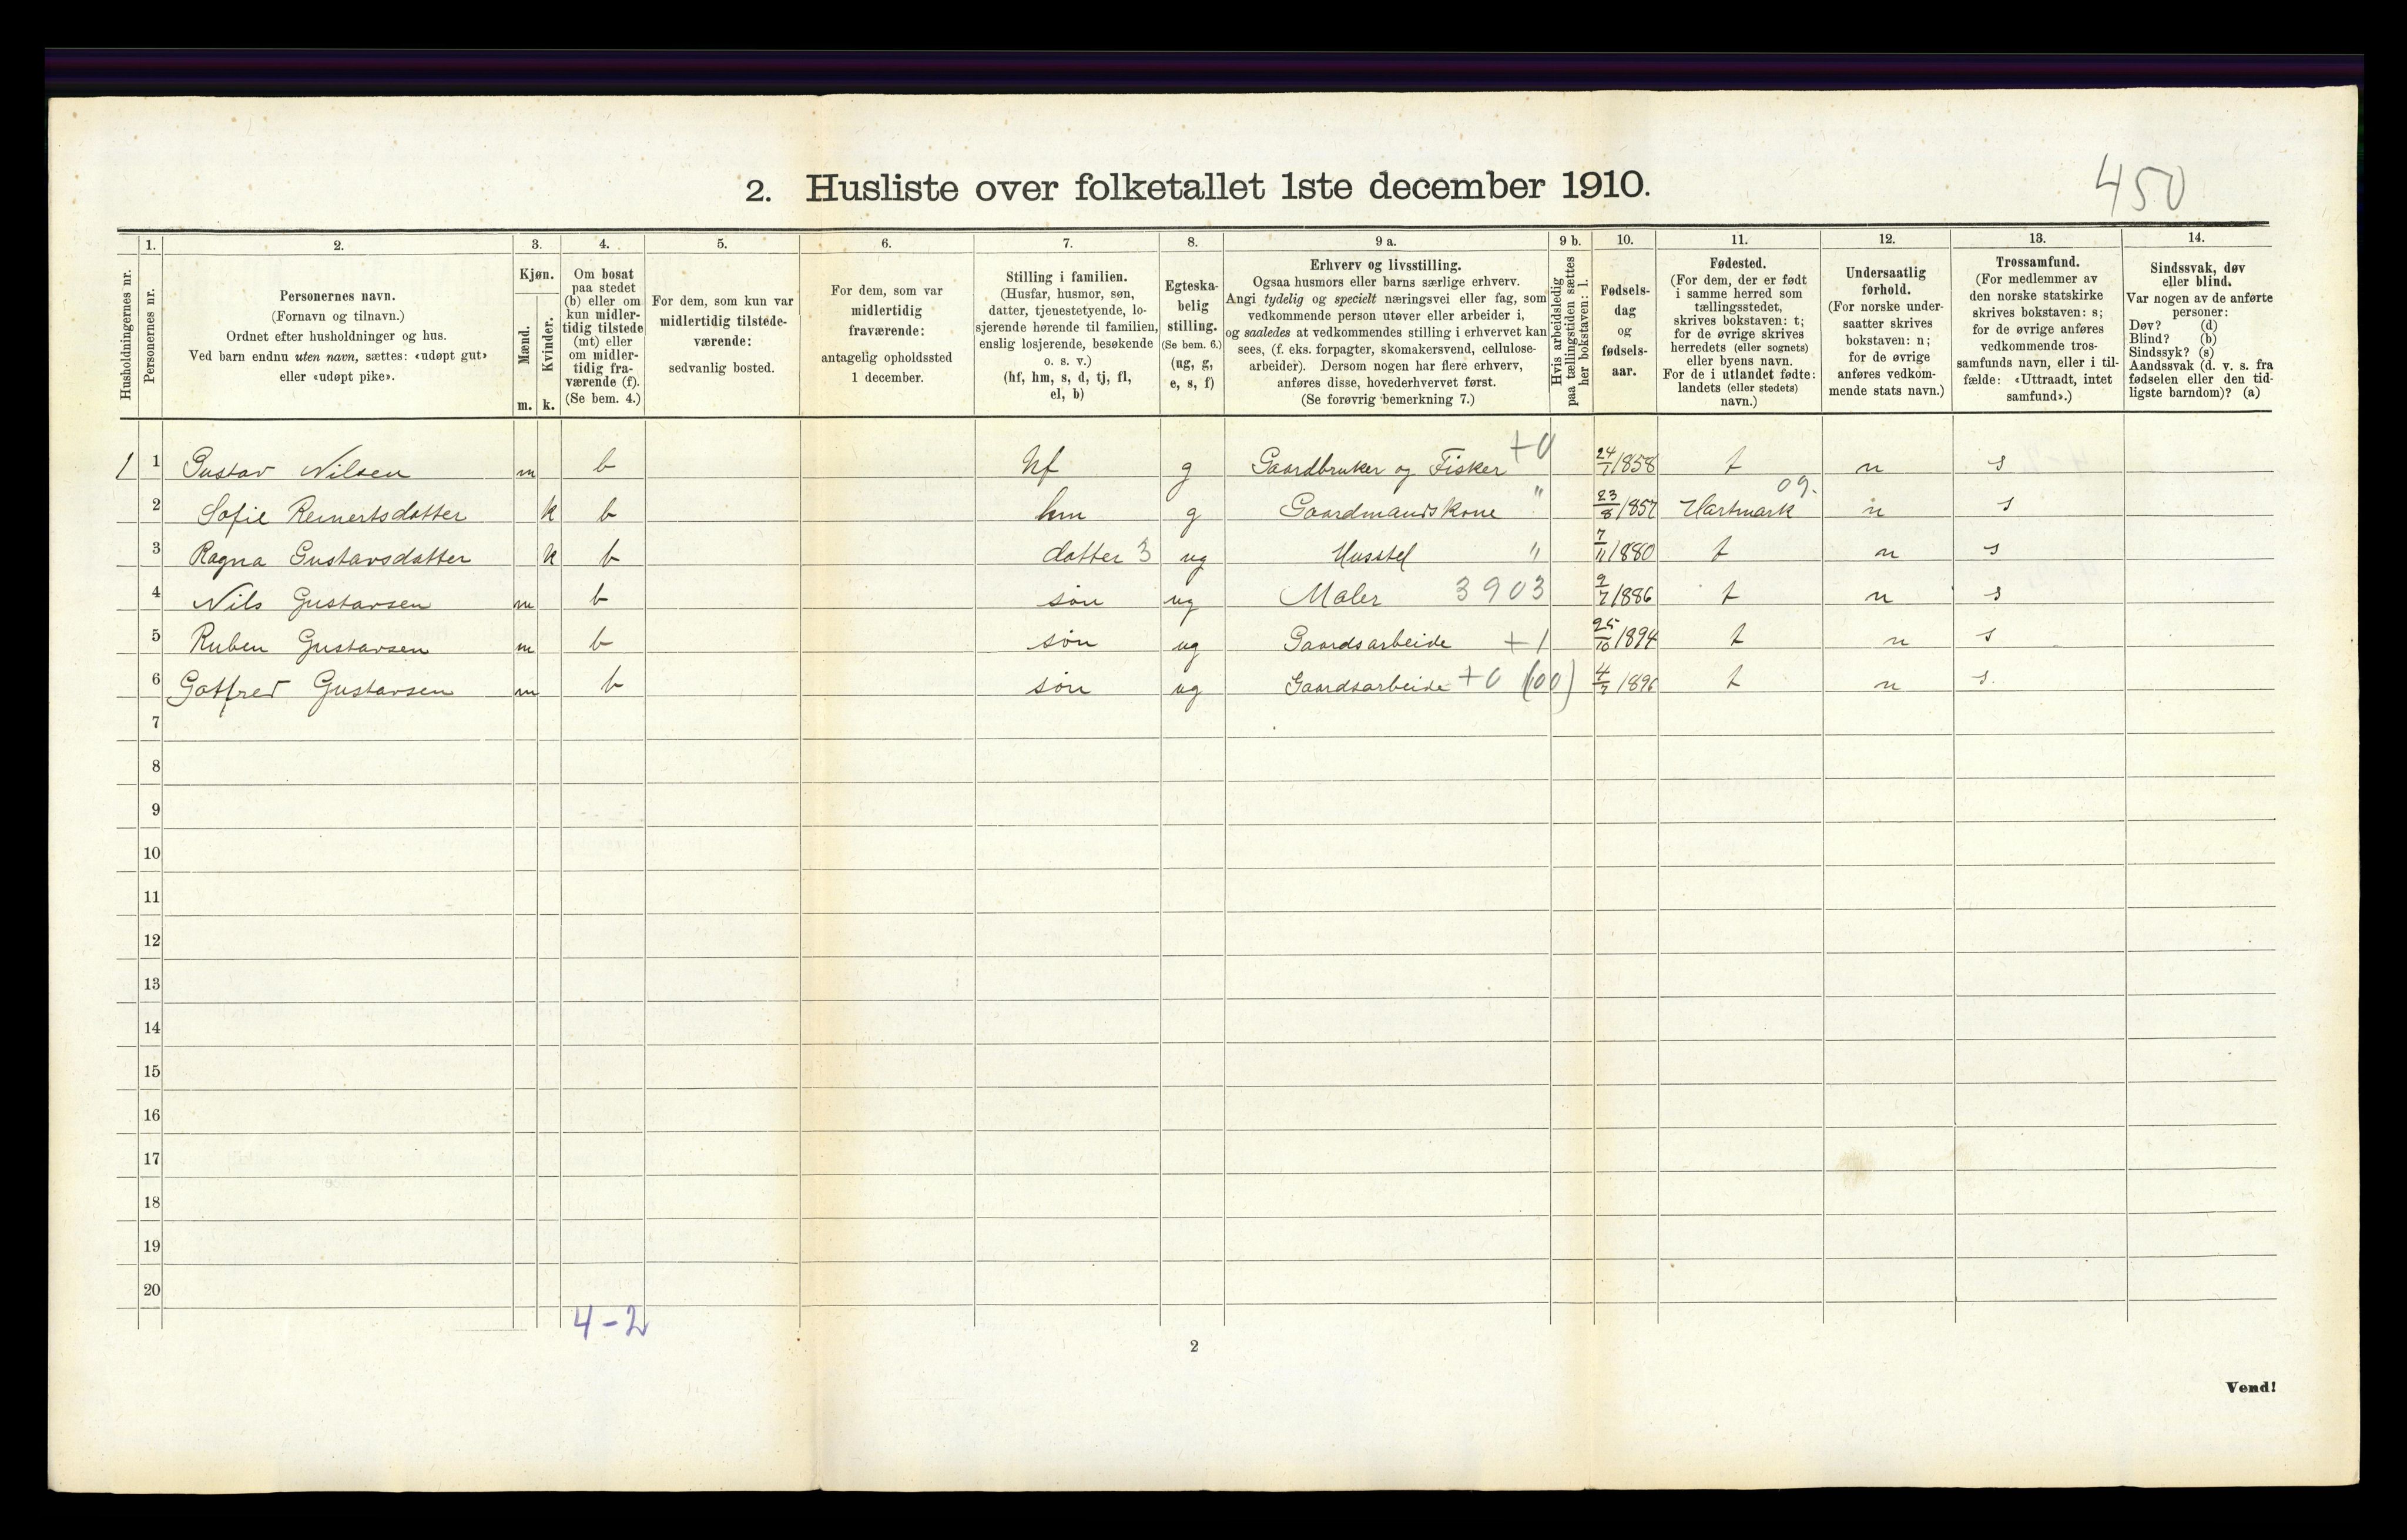 450
2. Husliste over folketallet 1ste december 1910.
Husholdningernes nr.
1. Personernes nr.
2. Personernes navn.
(Fornavn og tilnavn.)
Ordnet efter husholdninger og hus.
Ved barn endnu uten navn, sættes: «udøpt gut»
eller «udøpt pike».
3. Kjøn.
Mænd. m.
Kvinder. k.
4. Om bosat
paa stedet
(b) eller om
kun midler-
tidig tilstede
(mt) eller
om midler-
tidig fra-
værende (f).
(Se bem. 4.)
5. For dem, som kun var
midlertidig tilstede-
værende:
sedvanlig bosted.
6. For dem, som var
midlertidig
fraværende:
antagelig opholdssted
1 december.
7. Stilling i familien.
(Husfar, husmor, søn,
datter, tjenestetyende, lo-
sjerende hørende til familien,
enslig losjerende, besøkende
o. s. v.)
(hf, hm, s, d, tj, fl,
el, b)
8. Egteska-
belig
stilling.
(Se bem. 6.)
(ug, g,
e, s, f)
9 a. Erhverv og livsstilling.
Ogsaa husmors eller barns særlige erhverv.
Angi tydelig og specielt næringsvei eller fag, som
vedkommende person utøver eller arbeider i,
og saaledes at vedkommendes stilling i erhvervet kan
sees, (f. eks. forpagter, skomakersvend, cellulose-
arbeider). Dersom nogen har flere erhverv,
anføres disse, hovederhvervet først.
(Se forøvrig bemerkning 7.)
9 b. Hvis arbeidsledig
paa tællingstiden sættes
her bokstaven: l.
10. Fødsels-
dag
og
fødsels-
aar.
11. Fødested.
(For dem, der er født
i samme herred som
tællingsstedet,
skrives bokstaven: t;
for de øvrige skrives
herredets (eller sognets)
eller byens navn.
For de i utlandet fødte:
landets (eller stedets)
navn.)
12. Undersaatlig
forhold.
(For norske under-
saatter skrives
bokstaven: n;
for de øvrige
anføres vedkom-
mende stats navn.)
13. Trossamfund.
(For medlemmer av
den norske statskirke
skrives bokstaven: s;
for de øvrige anføres
vedkommende tros-
samfunds navn, eller i til-
fælde: «Uttraadt, intet
samfund».)
14. Sindssvak, døv
eller blind.
Var nogen av de anførte
personer:
Døv? (d)
Blind? (b)
Sindssyk? (s)
Aandssvak (d. v. s. fra
fødselen eller den tid-
ligste barndom)? (a)
1 1 Gustav Nilsen m b hf g Gaardbruker og Fisker +0 24/7 1858 t n s
2 Sofie Reinertsdatter k b hm g Gaardmandskone " 23/8 1857 Hartmark 09. n s
3 Ragna Gustavsdatter k b datter 3 ug Husstel " 7/11 1880 t n s
4 Nils Gustavsen m b søn ug Maler 3903 9/7 1886 t n s
5 Ruben Gustavsen m b søn ug Gaardsarbeide +1 25/10 1894 t n s
6 Gotfred Gustavsen m b søn ug Gaardsarbeide +0 (00) 4/7 1896 t n s.
7
8
9
10
11
12
13
14
15
16
17
18
19
20
4-2
2
Vend!